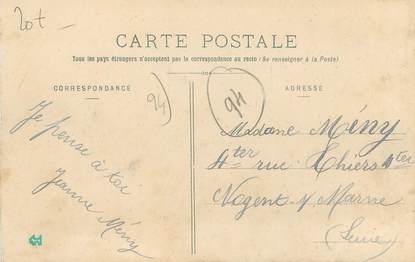 20t -
CARTE POSTALE
Tous les pays étrangers n'acceptent pas la correspondance au recto (Se renseigner à la Poste)
CORRESPONDANCE
94
Je pense à toi
Jeanne Mény
94
ADRESSE
Madame Mény
4ter rue Thiers 4ter
Nogent s/ Marne
(Seine)